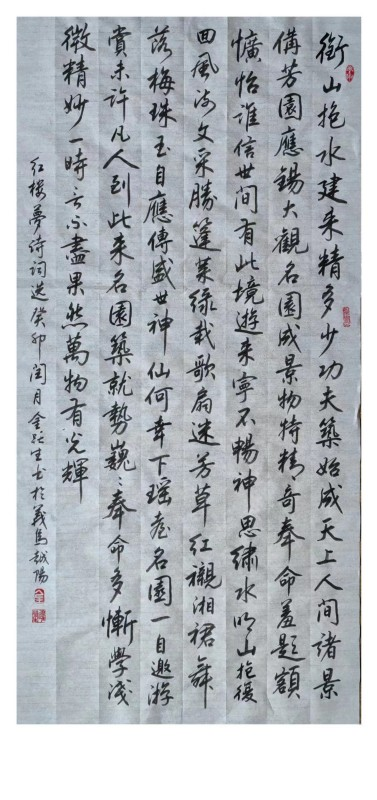 銜山抱水建来精多少功夫築始成天上人間諸景
備芳園應錫大觀名園成景物特精奇奉命羞題額
懭怡誰信世間有此境遊来寧不暢神思繡水明山抱復
回風流文采勝蓬萊綠裁歌扇迷芳草紅襯湘裙舞
落梅珠玉自應傳盛世神仙何幸下瑶臺名園一自邀游
賞未許凡人到此来名園築就勢巍〻奉命多慚學淺
微精妙一時言不盡果然萬物有光輝
红楼夢诗词选癸卯闰月金生书於義馬越陽